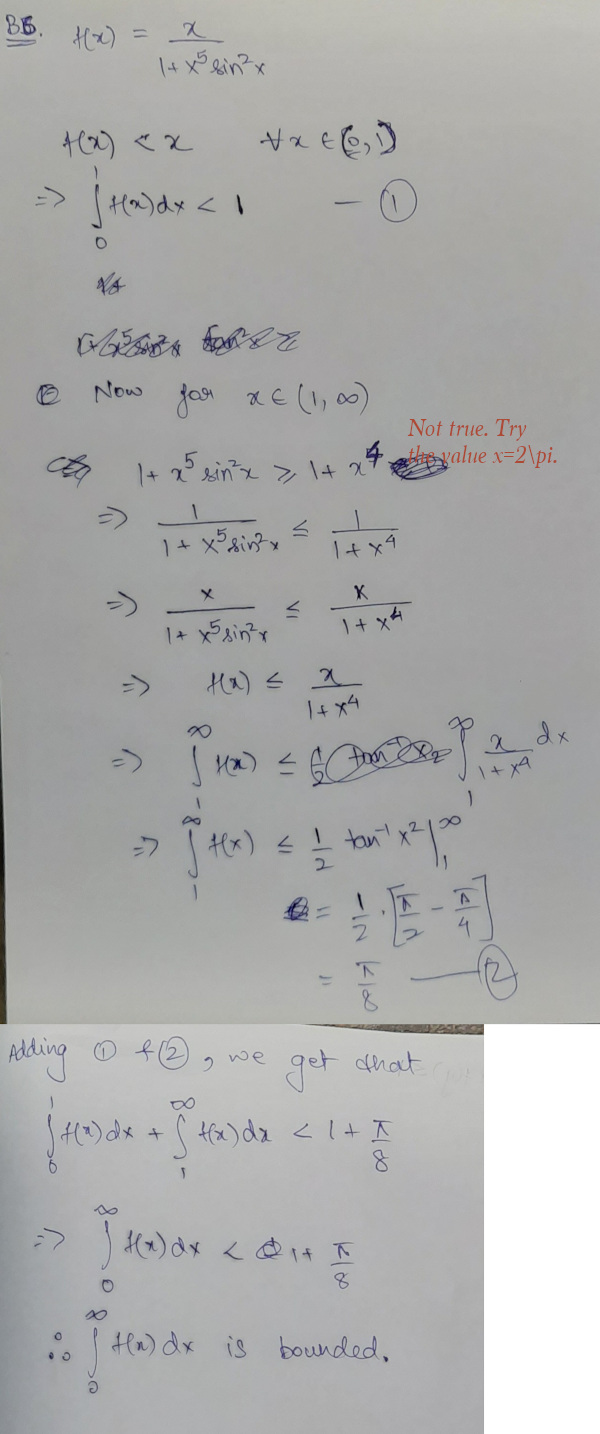 B6. f(x) = x / (1 + x⁵ sin²x)
f(x) < x ∀ x ∈ (0, 1)
⇒ ∫₀¹ f(x) dx < 1 — ①
Now for x ∈ (1, ∞)
Not true. Try
the value x=2\pi.
1 + x⁵ sin²x ≥ 1 + x⁴
⇒ 1 / (1 + x⁵ sin²x) ≤ 1 / (1 + x⁴)
⇒ x / (1 + x⁵ sin²x) ≤ x / (1 + x⁴)
⇒ f(x) ≤ x / (1 + x⁴)
⇒ ∫₁^∞ f(x) ≤ ∫₁^∞ x / (1 + x⁴) dx
⇒ ∫₁^∞ f(x) ≤ 1/2 tan⁻¹ x² |₁^∞
= 1/2 · [π/2 − π/4]
= π/8 — ②
Adding ① & ②, we get that
∫₀¹ f(x) dx + ∫₁^∞ f(x) dx < 1 + π/8
⇒ ∫₀^∞ f(x) dx < 1 + π/8
∴ ∫₀^∞ f(x) dx is bounded.